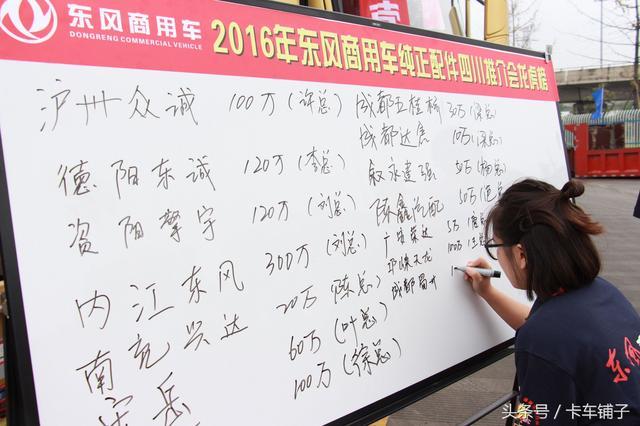 东风商用车
DONGFENG COMMERCIAL VEHICLE
2016年东风商用车纯正配件四川推介会龙虎榜
泸州众诚 100万(许总)
德阳东诚 120万(李总)
资阳擎宇 120万(刘总)
内江东风 300万(刘总)
南充兴达 20万(陈总)
60万(叶总)
100万(徐总)
成都五桂桥 30万(梁总)
成都达焦 10万(梁总)
叙永建强 50万(杨总)
陈鑫汽配 50万
广安荣达 5万
邛崃天龙 100万
成都蜀
东风
头条号 / 卡车铺子